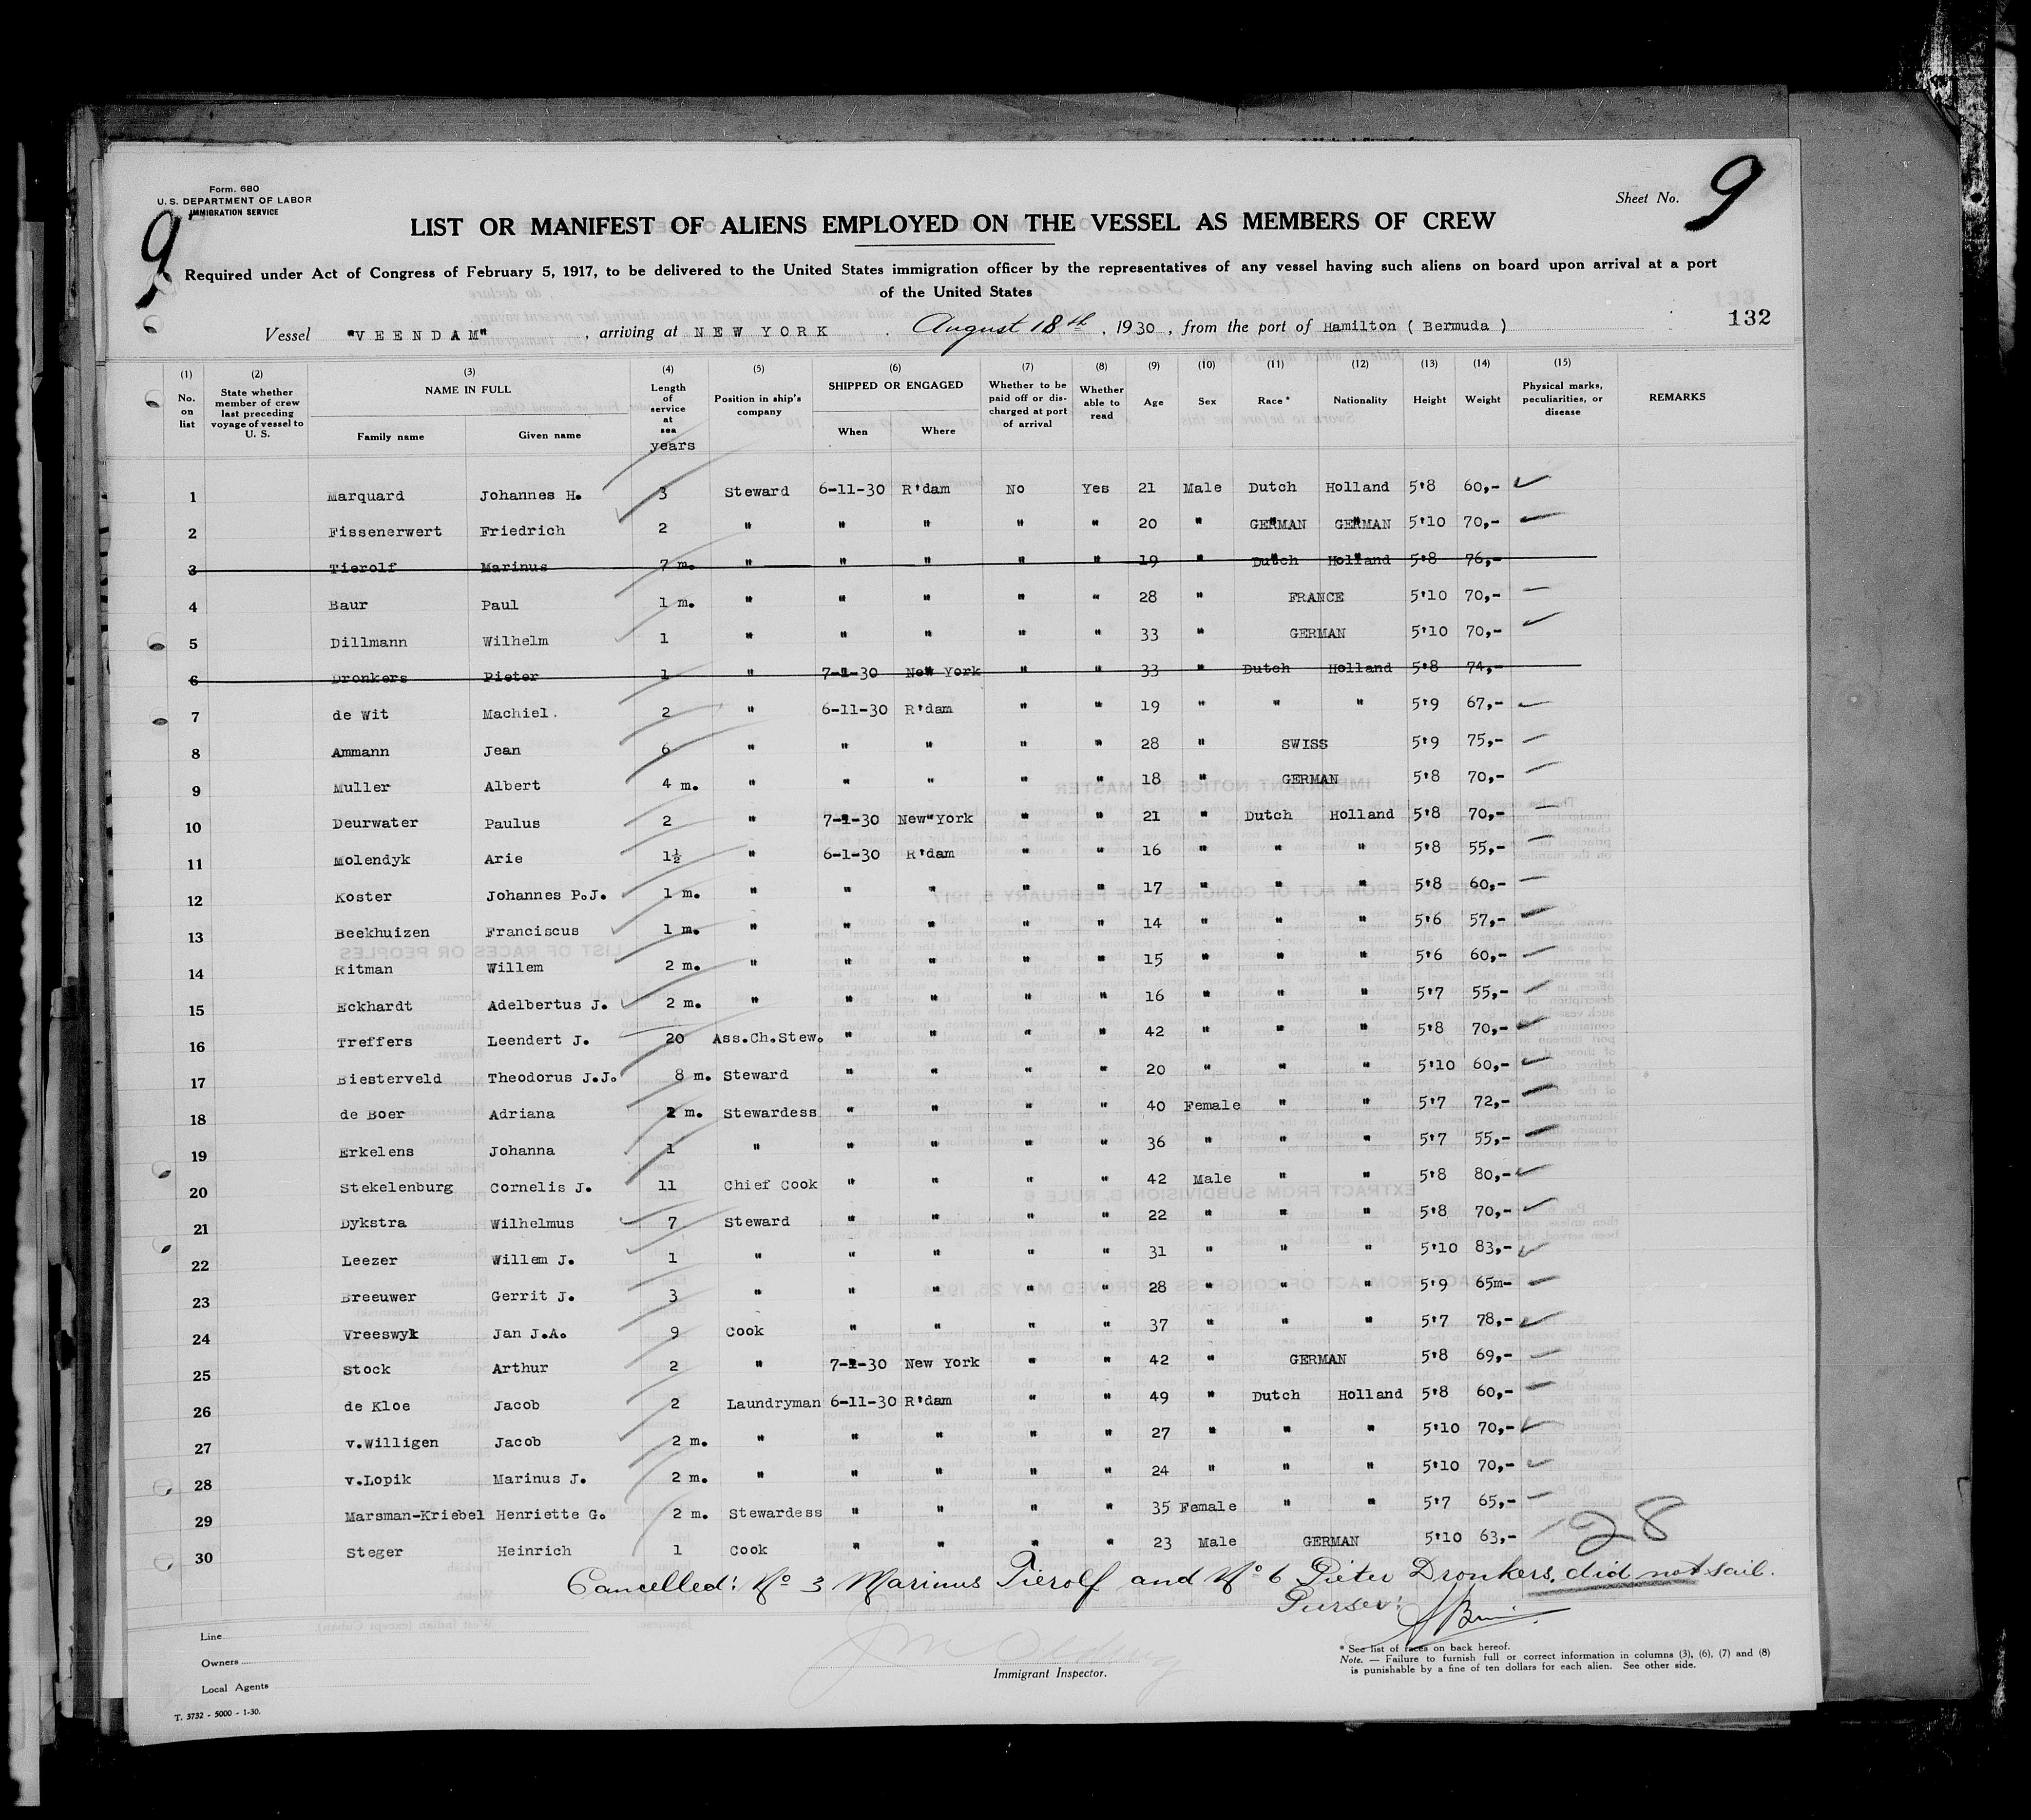 Form. 680
U. S. DEPARTMENT OF LABOR
IMMIGRATION SERVICE
9
Sheet No. 9
LIST OR MANIFEST OF ALIENS EMPLOYED ON THE VESSEL AS MEMBERS OF CREW
Required under Act of Congress of February 5, 1917, to be delivered to the United States immigration officer by the representatives of any vessel having such aliens on board upon arrival at a port
of the United States
132
Vessel "VEENDAM" , arriving at NEW YORK . August 18th , 1930 , from the port of Hamilton ( Bermuda )
(1) No. on list (2) State whether member of crew last preceding voyage of vessel to U. S. (3) NAME IN FULL Family name Given name (4) Length of service at sea years (5) Position in ship's company (6) SHIPPED OR ENGAGED When Where (7) Whether to be paid off or discharged at port of arrival (8) Whether able to read (9) Age (10) Sex (11) Race * (12) Nationality (13) Height (14) Weight (15) Physical marks, peculiarities, or disease REMARKS
1 Marquard Johannes H. 3 Steward 6-11-30 R'dam No Yes 21 Male Dutch Holland 5'8 60,-
2 Fissenerwert Friedrich 2 " " " " " 20 " GERMAN GERMAN 5'10 70,-
3 Tierolf Marinus 7 m. " " " " " 19 " Dutch Holland 5'8 76,-
4 Baur Paul 1 m. " " " " " 28 " FRANCE 5'10 70,-
5 Dillmann Wilhelm 1 " " " " " 33 " GERMAN 5'10 70,-
6 Dronkers Pieter 1 " 7-1-30 New York " " 33 " Dutch Holland 5'8 74,-
7 de Wit Machiel. 2 " 6-11-30 R'dam " " 19 " " " 5'9 67,-
8 Ammann Jean 6 " " " " " 28 " SWISS 5'9 75,-
9 Muller Albert 4 m. " " " " " 18 " GERMAN 5'8 70,-
10 Deurwater Paulus 2 " 7-1-30 New York " " 21 " Dutch Holland 5'8 70,-
11 Molendyk Arie 1½ " 6-1-30 R'dam " " 16 " " " 5'8 55,-
12 Koster Johannes P.J. 1 m. " " " " " 17 " " " 5'8 60,-
13 Beekhuizen Franciscus 1 m. " " " " " 14 " " " 5'6 57,-
14 Ritman Willem 2 m. " " " " " 15 " " " 5'6 60,-
15 Eckhardt Adelbertus J. 2 m. " " " " " 16 " " " 5'7 55,-
16 Treffers Leendert J. 20 Ass.Ch.Stew. " " " " 42 " " " 5'8 70,-
17 Biesterveld Theodorus J.J. 8 m. Steward " " " " 20 " " " 5'10 60,-
18 de Boer Adriana 2 m. Stewardess " " " " 40 Female " " 5'7 72,-
19 Erkelens Johanna 1 " " " " " 36 " " " 5'7 55,-
20 Stekelenburg Cornelis J. 11 Chief Cook " " " " 42 Male " " 5'8 80,-
21 Dykstra Wilhelmus 7 Steward " " " " 22 " " " 5'8 70,-
22 Leezer Willem J. 1 " " " " " 31 " " " 5'10 83,-
23 Breeuwer Gerrit J. 3 " " " " " 28 " " " 5'9 65m-
24 Vreeswyk Jan J.A. 9 Cook " " " " 37 " " " 5'7 78,-
25 Stock Arthur 2 " 7-1-30 New York " " 42 " GERMAN 5'8 69,-
26 de Kloe Jacob 2 Laundryman 6-11-30 R'dam " " 49 " Dutch Holland 5'8 60,-
27 v.Willigen Jacob 2 m. " " " " " 27 " " " 5'10 70,-
28 v.Lopik Marinus J. 2 m. " " " " " 24 " " " 5'10 70,-
29 Marsman-Kriebel Henriette G. 2 m. Stewardess " " " " 35 Female " " 5'7 65,-
30 Steger Heinrich 1 Cook " " " " 23 Male GERMAN 5'10 63,-
28
Cancelled: No 3 Marinus Tierolf and No 6 Pieter Dronkers, did not sail.
Purser:
Line
Owners
Local Agents
Immigrant Inspector.
* See list of races on back hereof.
Note. — Failure to furnish full or correct information in columns (3), (6), (7) and (8)
is punishable by a fine of ten dollars for each alien. See other side.
T. 3732 - 5000 - 1-30.